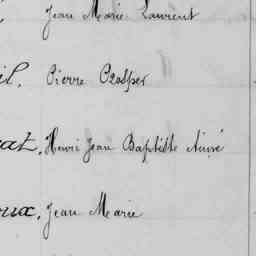 Jean Marie Laurent
il. Pierre Prosper
at. Henri Jean Baptiste Aimé
oux. Jean Marie